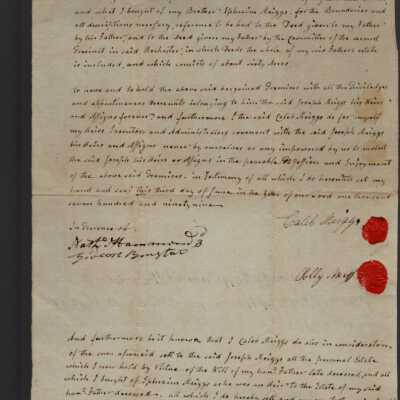 and what I bought of my Brother Ephraim Meiggs, for the Boundaries and
all divisions necessary, reference to be had to the Deed given to my Father
by his Father, and to the Deed given my Father by the Committee of the
Precinct in said Rochester, in which Deeds the whole of my said Fathers estate
is included, and which consists of about sixty Acres
To have and to hold the above said bargained Premises with all the Priviledges
and appurtenances thereunto belonging to him the said Joseph Meiggs his Heirs
and Assigns forever, and furthermore I the said Caleb Meiggs do for myself
my heirs Executors and Administrators covenant with the said Joseph Meiggs
his Heirs and Assigns never by ourselves or any impowered by us to molest
the said Joseph his heirs or Assigns in the peaceable Possession and Enjoyment
of the above said Premises. in Testimony of all which I do hereunto set my
hand and seal this third day of June in the year of our Lord one thousand
seven hundred and ninety nine
Caleb Meiggs
In Presence of
Nath. Hammond
Polly Meiggs
And furthermore be it known that I Caleb Meiggs do also in consideration
of the sum aforesaid sell to the said Joseph Meiggs all the personal Estate
which I now hold by Virtue of the Will of my hon. Father late deceased, and all
which I bought of Ephraim Meiggs who was an heir to the Estate of my said
hon. Father deceased